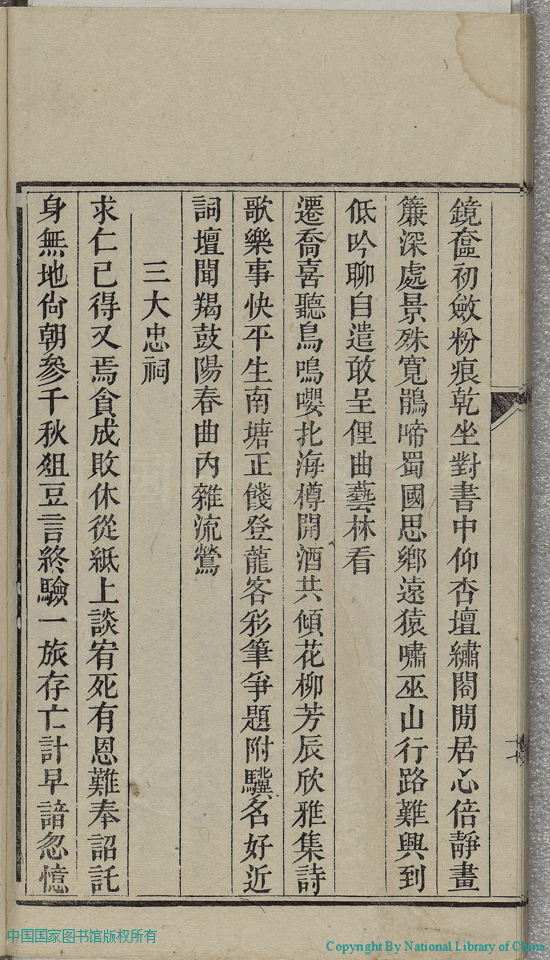 鏡奩初斂粉痕乾坐對書中仰杏壇繡閣閒居心倍靜畫
簾深處景殊寬鵑啼蜀國思鄉遠猿嘯巫山行路難興到
低吟聊自遣敢呈俚曲藝林看
遷喬喜聽鳥鳴嚶北海樽開酒共傾花柳芳辰欣雅集詩
歌樂事快平生南塘正餞登龍客彩筆爭題附驥名好近
詞壇聞羯鼓陽春曲內雜流鶯
三大忠祠
求仁已得又焉貪成敗休從紙上談宥死有恩難奉詔託
身無地尙朝參千秋俎豆言終驗一旅存亡計早諳忽憶
中国国家图书馆版权所有
Copyright By National Library of China